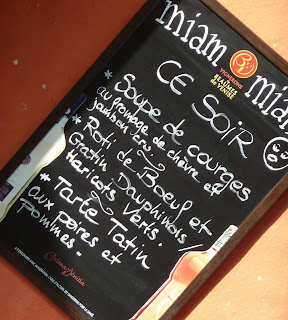 miam miam
VIGNERONS
BEAUMES
de VENISE
CE SOIR
* Soupe de courges
au fromage de chèvre et
jambon cru.
* Roti de Boeuf et
Gratin Dauphinois,
Haricots Verts.
* Tarte Tatin
aux poires et
pommes.